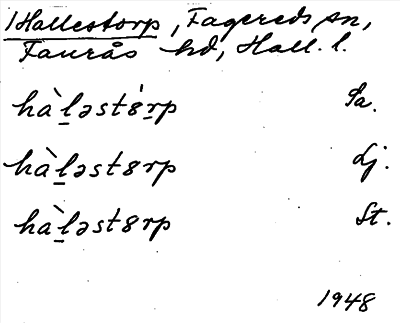 1 Hallestorp, Fagereds sn,
Faurås hd, Hall. l.
hàl̲əst8̍r̲p Sa.
hàl̲əst8rp Lj.
hàl̲əst8rp St.
1948